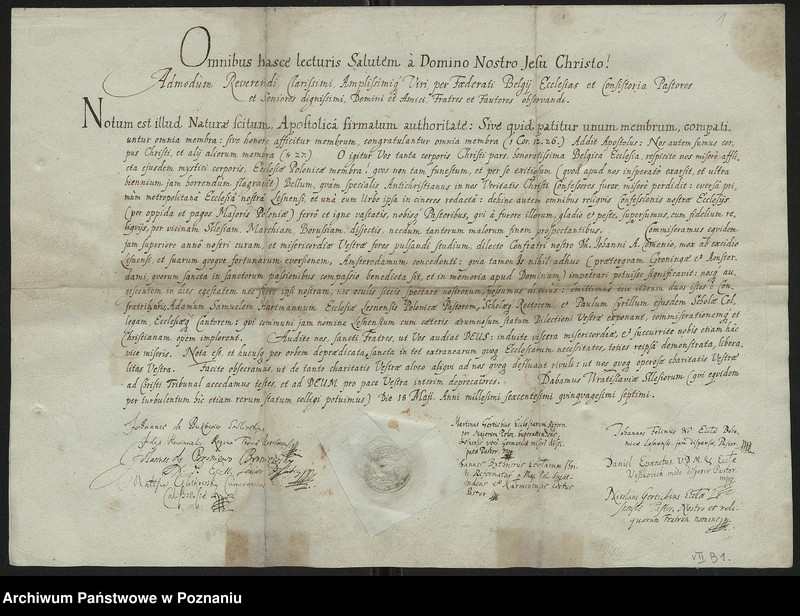 1
Omnibus hasce lecturis Salutem à Domino Nostro Jesu Christo!
Admodum Reverendi, Clarissimi, Amplissimiq Viri, per Fœderati Belgij Ecclesias et Consistoria Pastores
et Seniores dignissimi, Domini et Amici, Fratres et Fautores observandi.
Notum est illud Naturæ scitum, Apostolicâ firmatum authoritate: Sive quid patitur unum membrum, compati,
untur omnia membra: sive honore afficitur membrum, congratulantur omnia membra (1 Cor. 12. 26.) Addit Apostolus: Vos autem sumus cor,
pus Christi, et alij aliorum membra (℣ 27.) O igitur Vos tanta corporis Christi pars, honoratissima Belgica Ecclesia, respicite nos misere affli,
cta ejusdem mystici corporis, Ecclesiæ Polonicæ membra: quos non tam funestum, et per se exitiosum (quod apud nos insperatò exarsit, et ultra
biennium jam horrendum flagravit) Bellum, quàm specialis Antichristianus in nos Veritatis Christi Confessores furor misere perdidit: eversâ pri,
mum metropolitanâ Ecclesiâ nostrâ Lesnensi, et unà cum Urbe ipsa in cineres redacta: dehinc autem omnibus reliquis Confessionis nostræ Ecclesijs
(per oppida et pagos Majoris Poloniæ) ferrò et igne vastatis, nobisq Pastoribus, qui à furore illorum, gladio et peste, superfuimus, cum fidelium re,
liquijs, per vicinam Silesiam, Marchiam, Borussiam, disjectis, necdum tantorum malorum finem prospectantibus. Commiseramus equidem
jam superiore anno nostri curam, et misericordiæ Vestræ fores pulsandi studium, dilecto Confratri nostro Dn. Johanni A. Comenio, mox ab excidio
Lesnensi, et suarum quoque fortunarum eversionem, Amsterodamum concedenti: qvia tamen is nihil adhuc (præterquam Groningæ et Amster,
dami, quorum sancta in sanctorum passionibus compassio benedicta sit, et in memoria apud Dominum) impetrari potuisse significavit: nosq au,
gescentem in dies egestatem nec ferre ipsi nostram, nec oculis siccis spectare nostrorum, possumus diutius: emittimus ecce iterum duos istos è Con,
fratribus, Adamum Samuelem Hartmannum Ecclesiæ Lesnensis Polonicæ Pastorem, Scholæq Rectorem et Paulum Cyrillum ejusdem Scholæ Col,
legam, Ecclesiæq Cantorem: qui communi jam nomine Lesnensium cum cæteris ærumnosum statum Dilectioni Vestræ exponant, commiserationemq et
Christianam opem implorent. Audite nos, sancti Fratres, ut Vos audiat DEUS: induite viscera misericordiæ, et succurrite nobis etiam hâc
vice miseris. Nota est, et hucusq per orbem deprædicata, sancta in tot extranearum quoq Ecclesiarum necessitates, toties reipsâ demonstrata, libera,
litas Vestra. Facite obsecramus, ut de tanto charitatis Vestræ alveo aliqui ad nos quoq defluant rivuli: ut nos quoq operosæ charitatis Vestræ
ad Christi Tribunal accedamus testes, et ad DEUM pro pace Vestra interim deprecatores. Dabamus Wratislaviæ Silesiorum (qui equidem
per turbulentum hic etiam rerum statum colligi potuimus) Die 18 Maji. Anni millesimi, sexcentesimi quinquagesimi septimi.
Martinus Gertichius Ecclesiarum Reform.
per Majorem Polon.
Pastor
Johannes Felinus
Daniel Epenetus V.D.M. Eccla
Nicolaus Gertichius
Pastor, Nostro et reli,
quorum Fratrum nomine
VII B1.
Archiwum Państwowe w Poznaniu